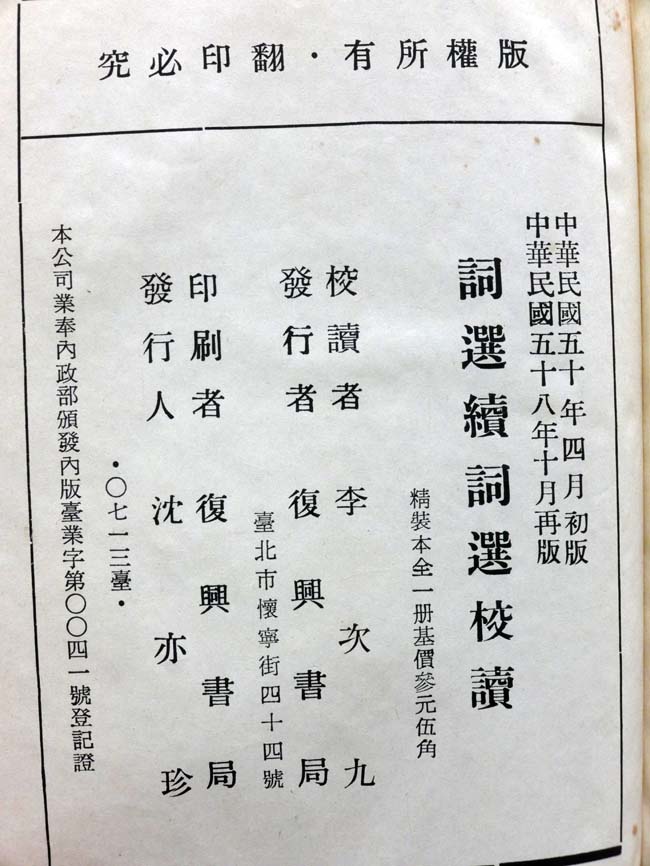 版權所有・翻印必究
中華民國五十年四月初版
中華民國五十八年十月再版
詞選續詞選校讀
精裝本全一册基價參元伍角
校讀者 李次九
發行者 復興書局
臺北市懷寧街四十四號
印刷者 復興書局
發行人 沈亦珍
・〇七一三臺・
本公司業奉內政部頒發內版臺業字第〇〇四一號登記證